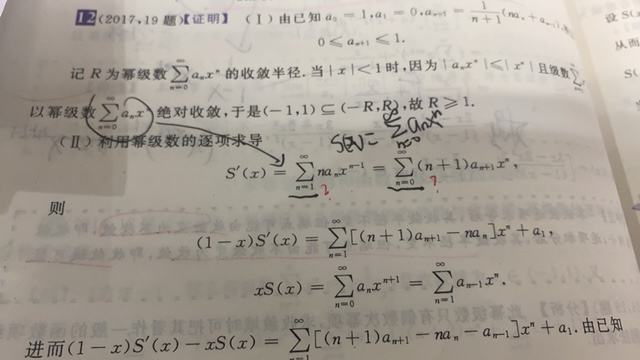 12 (2017,19题)【证明】 (Ⅰ)由已知 a₀=1,a₁=0,aₙ₊₁=1/(n+1)(naₙ+aₙ₋₁),
0≤aₙ₊₁≤1.
记 R 为幂级数∑_{n=0}^{∞}aₙxⁿ 的收敛半径.当|x|<1时,因为|aₙxⁿ|≤|xⁿ|且级数∑
以幂级数∑_{n=0}^{∞}aₙx 绝对收敛,于是(-1,1)⊆(-R,R),故 R≥1.
S(x)=∑_{n=0}^{∞}aₙxⁿ
(Ⅱ)利用幂级数的逐项求导
S′(x)=∑_{n=1}^{∞}naₙxⁿ⁻¹=∑_{n=0}^{∞}(n+1)aₙ₊₁xⁿ,
? ?
则
(1-x)S′(x)=∑_{n=1}^{∞}[(n+1)aₙ₊₁-naₙ]xⁿ+a₁,
xS(x)=∑_{n=0}^{∞}aₙxⁿ⁺¹=∑_{n=1}^{∞}aₙ₋₁xⁿ.
进而(1-x)S′(x)-xS(x)=∑_{n=1}^{∞}[(n+1)aₙ₊₁-naₙ-aₙ₋₁]xⁿ+a₁.由已知
设 S(
从而
S(